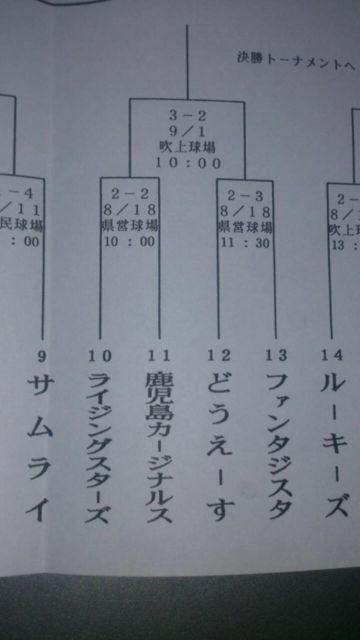 決勝トーナメントへ
3－2
9／1
吹上球場
10：00
－4
／11
民球場
：00
2－2
8／18
県営球場
10：00
2－3
8／18
県営球場
11：30
2－
8／
吹上
13：
9
サムライ
10
ライジングスターズ
11
鹿児島カージナルス
12
どうえーす
13
ファンタジスタ
14
ルーキーズ